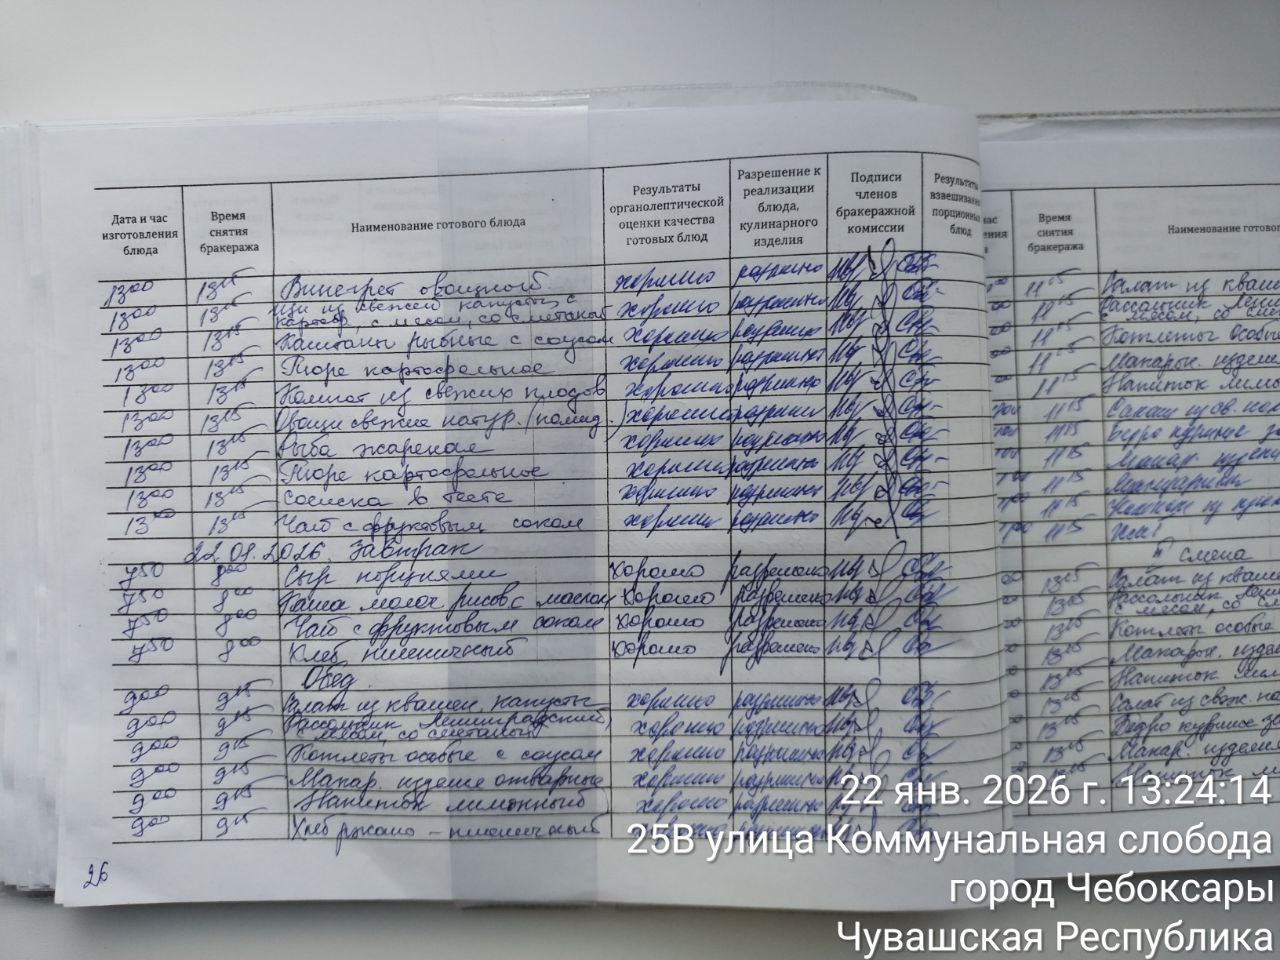 Дата и час изготовления блюда | Время снятия бракеража | Наименование готового блюда | Результаты органолептической оценки качества готовых блюд | Разрешение к реализации блюда, кулинарного изделия | Подписи членов бракеражной комиссии | Результаты взвешивания порционных блюд
13⁰⁰ 13¹⁵ Винегрет овощной хорошо разрешено
13⁰⁰ 13¹⁵ Щи из свежей капусты с картоф, с мясом, со сметаной хорошо разрешено
13⁰⁰ 13¹⁵ Каштаны рыбные с соусом хорошо разрешено
13⁰⁰ 13¹⁵ Пюре картофельное хорошо разрешено
13⁰⁰ 13¹⁵ Компот из свежих плодов хорошо разрешено
13⁰⁰ 13¹⁵ Овощи свежие натур. (помид.) хорошо разрешено
13⁰⁰ 13¹⁵ Рыба жареная хорошо разрешено
13⁰⁰ 13¹⁵ Пюре картофельное хорошо разрешено
13⁰⁰ 13¹⁵ Сосиска в тесте хорошо разрешено
13⁰⁰ 13¹⁵ Чай с фруктовым соком хорошо разрешено
22.01.2026. Завтрак
7⁵⁰ 8⁰⁰ Сыр порциями хорошо разрешено
7⁵⁰ 8⁰⁰ Каша молоч рисов с маслом хорошо разрешено
7⁵⁰ 8⁰⁰ Чай с фруктовым соком хорошо разрешено
7⁵⁰ 8⁰⁰ Хлеб пшеничный хорошо разрешено
Обед
9⁰⁰ 9¹⁵ Салат из квашен. капусты хорошо разрешено
9⁰⁰ 9¹⁵ Рассольник Ленинградский с мясом, со сметаной хорошо разрешено
9⁰⁰ 9¹⁵ Котлеты особые с соусом хорошо разрешено
9⁰⁰ 9¹⁵ Макар. изделие отварные хорошо разрешено
9⁰⁰ 9¹⁵ Напиток лимонный хорошо разрешено
9⁰⁰ 9¹⁵ Хлеб ржано-пшеничный хорошо разрешено
26
Время снятия бракеража | Наименование готового
11¹⁵ Салат из кваше
11¹⁵ Рассольник Лени с мясом, со сме
11¹⁵ Котлеты особые
11¹⁵ Макарон. издели
11¹⁵ Напиток лимо
11¹⁵
11¹⁵ Бедро куриное за
11¹⁵ Макар. издели
11¹⁵ Мандарины
11¹⁵
11¹⁵
II смена
13¹⁵ Салат из кваше
13¹⁵ Рассольник Лени с мясом, со см
13¹⁵ Котлеты особые
13¹⁵ Макарон. издел
13¹⁵ Напиток лим
13¹⁵ Салат из свеж. по
13¹⁵ Бедро куриное за
13¹⁵ Макар. изделия
Напиток ли
22 янв. 2026 г. 13:24:14
25В улица Коммунальная слобода
город Чебоксары
Чувашская Республика